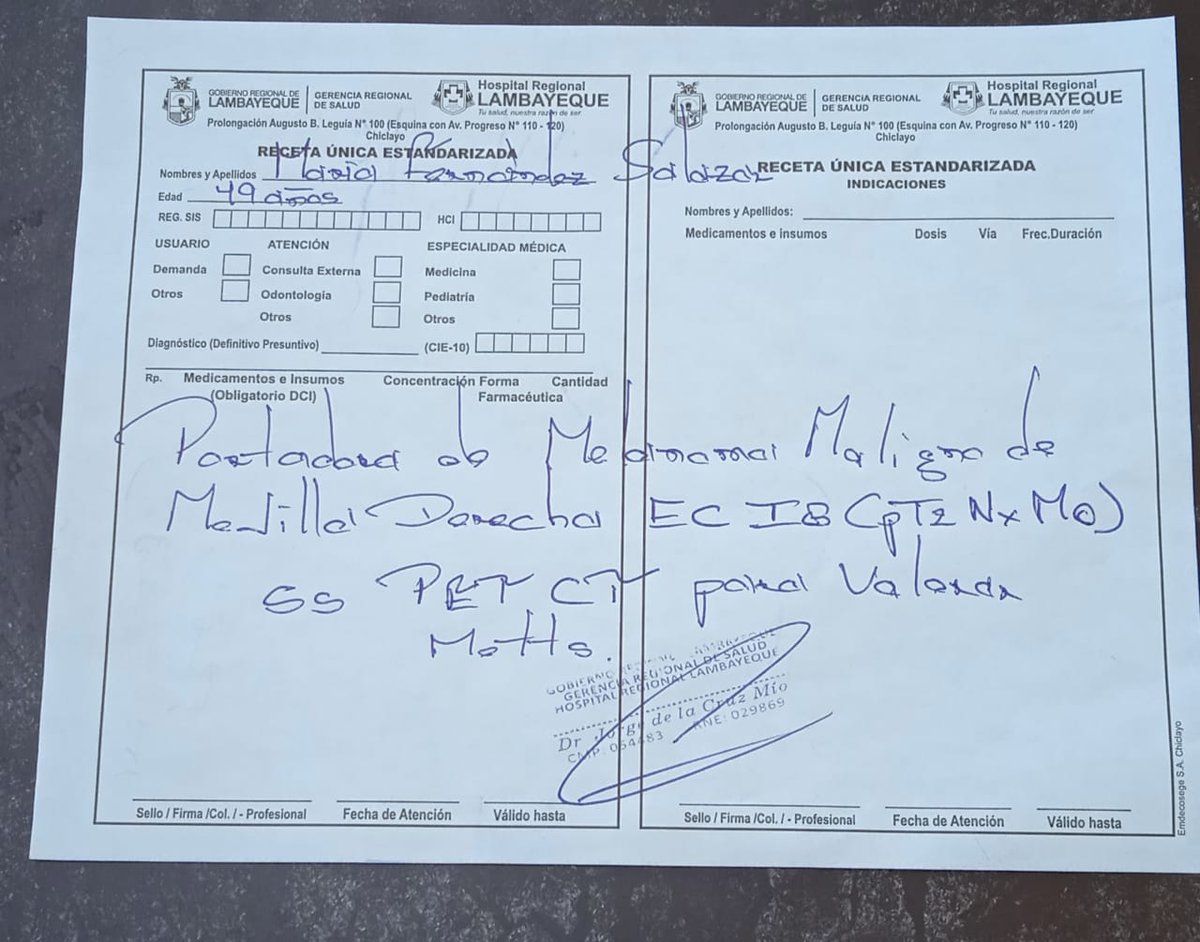 GOBIERNO REGIONAL DE
LAMBAYEQUE
GERENCIA REGIONAL
DE SALUD
Hospital Regional
LAMBAYEQUE
Tu salud, nuestra razón de ser
Prolongación Augusto B. Leguía N° 100 (Esquina con Av. Progreso N° 110 - 120)
Chiclayo
RECETA ÚNICA ESTANDARIZADA
Nombres y Apellidos María Fernandez Salazar
Edad 49 años
REG. SIS HCl
USUARIO ATENCIÓN ESPECIALIDAD MÉDICA
Demanda Consulta Externa Medicina
Otros Odontología Pediatría
Otros Otros
Diagnóstico (Definitivo Presuntivo) (CIE-10)
Rp. Medicamentos e Insumos Concentración Forma Cantidad
(Obligatorio DCI) Farmacéutica
GOBIERNO REGIONAL DE
LAMBAYEQUE
GERENCIA REGIONAL
DE SALUD
Hospital Regional
LAMBAYEQUE
Tu salud, nuestra razón de ser
Prolongación Augusto B. Leguía N° 100 (Esquina con Av. Progreso N° 110 - 120)
Chiclayo
RECETA ÚNICA ESTANDARIZADA
INDICACIONES
Nombres y Apellidos:
Medicamentos e insumos Dosis Vía Frec.Duración
Portadora de Melanoma Maligno de
Mejilla Derecha EC IB (pT2 Nx M0)
SS PET CT para Valorar
Motts.
GERENCIA REGIONAL DE SALUD
HOSPITAL REGIONAL LAMBAYEQUE
Dr. Jorge de la Cruz Mío
CMP: 054483 RNE: 029869
Sello / Firma /Col. / - Profesional Fecha de Atención Válido hasta
Sello / Firma /Col. / - Profesional Fecha de Atención Válido hasta
Emdecosege S.A. Chiclayo